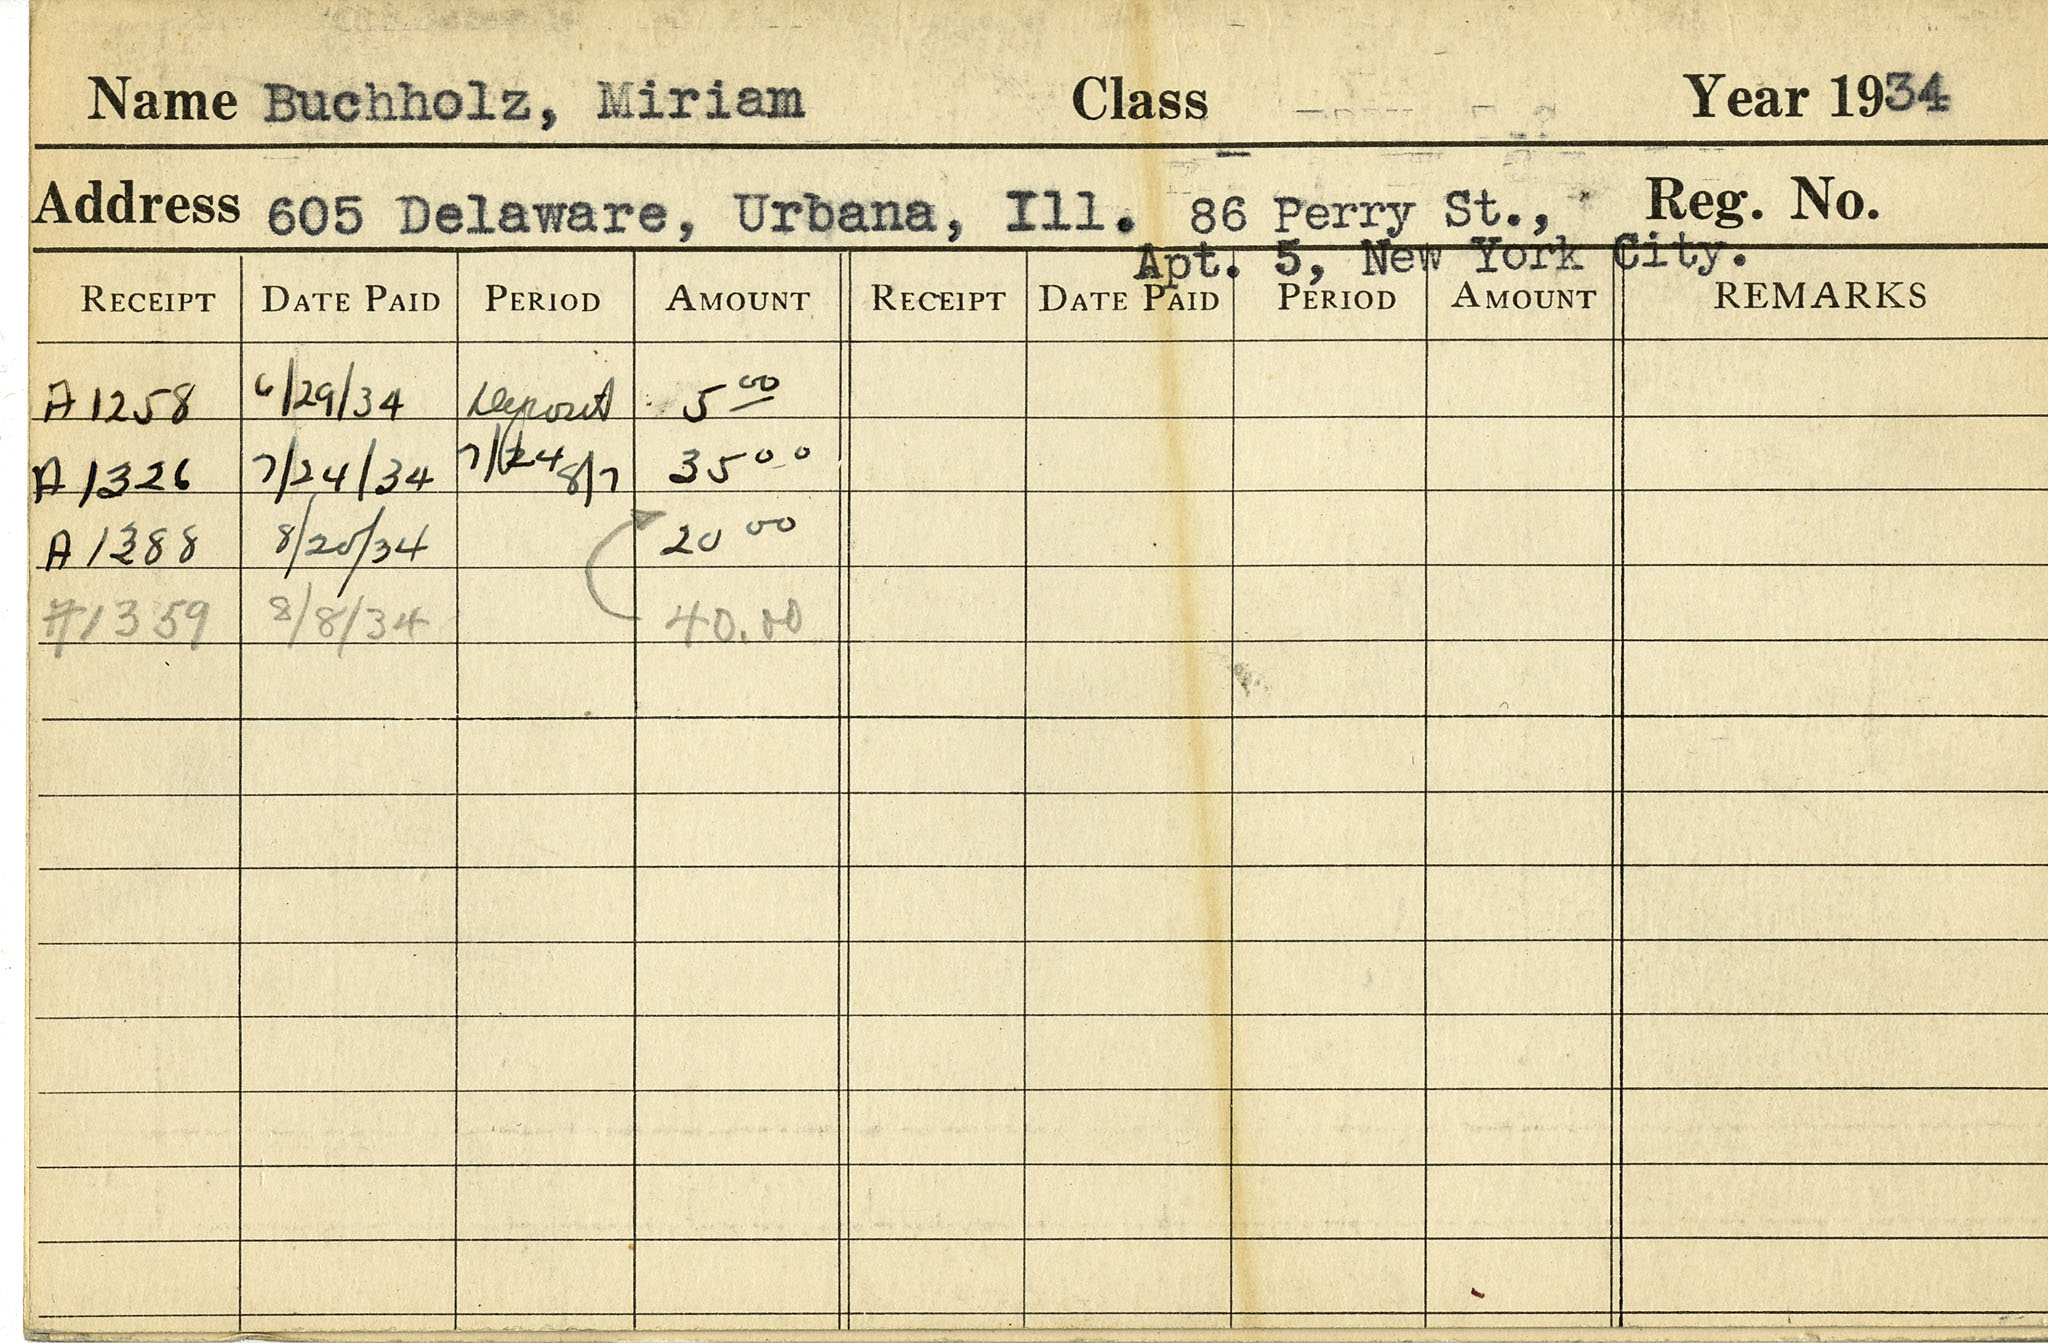 Name Buchholz, Miriam Class Year 1934
Address 605 Delaware, Urbana, Ill. 86 Perry St., Reg. No.
Apt. 5, New York City.
RECEIPT DATE PAID PERIOD AMOUNT RECEIPT DATE PAID PERIOD AMOUNT REMARKS
A1258 6/29/34 Deposit 5 00
A1326 7/24/34 7/24 8/7 35 00
A1388 8/20/34 20 00
#1359 8/8/34 40.00